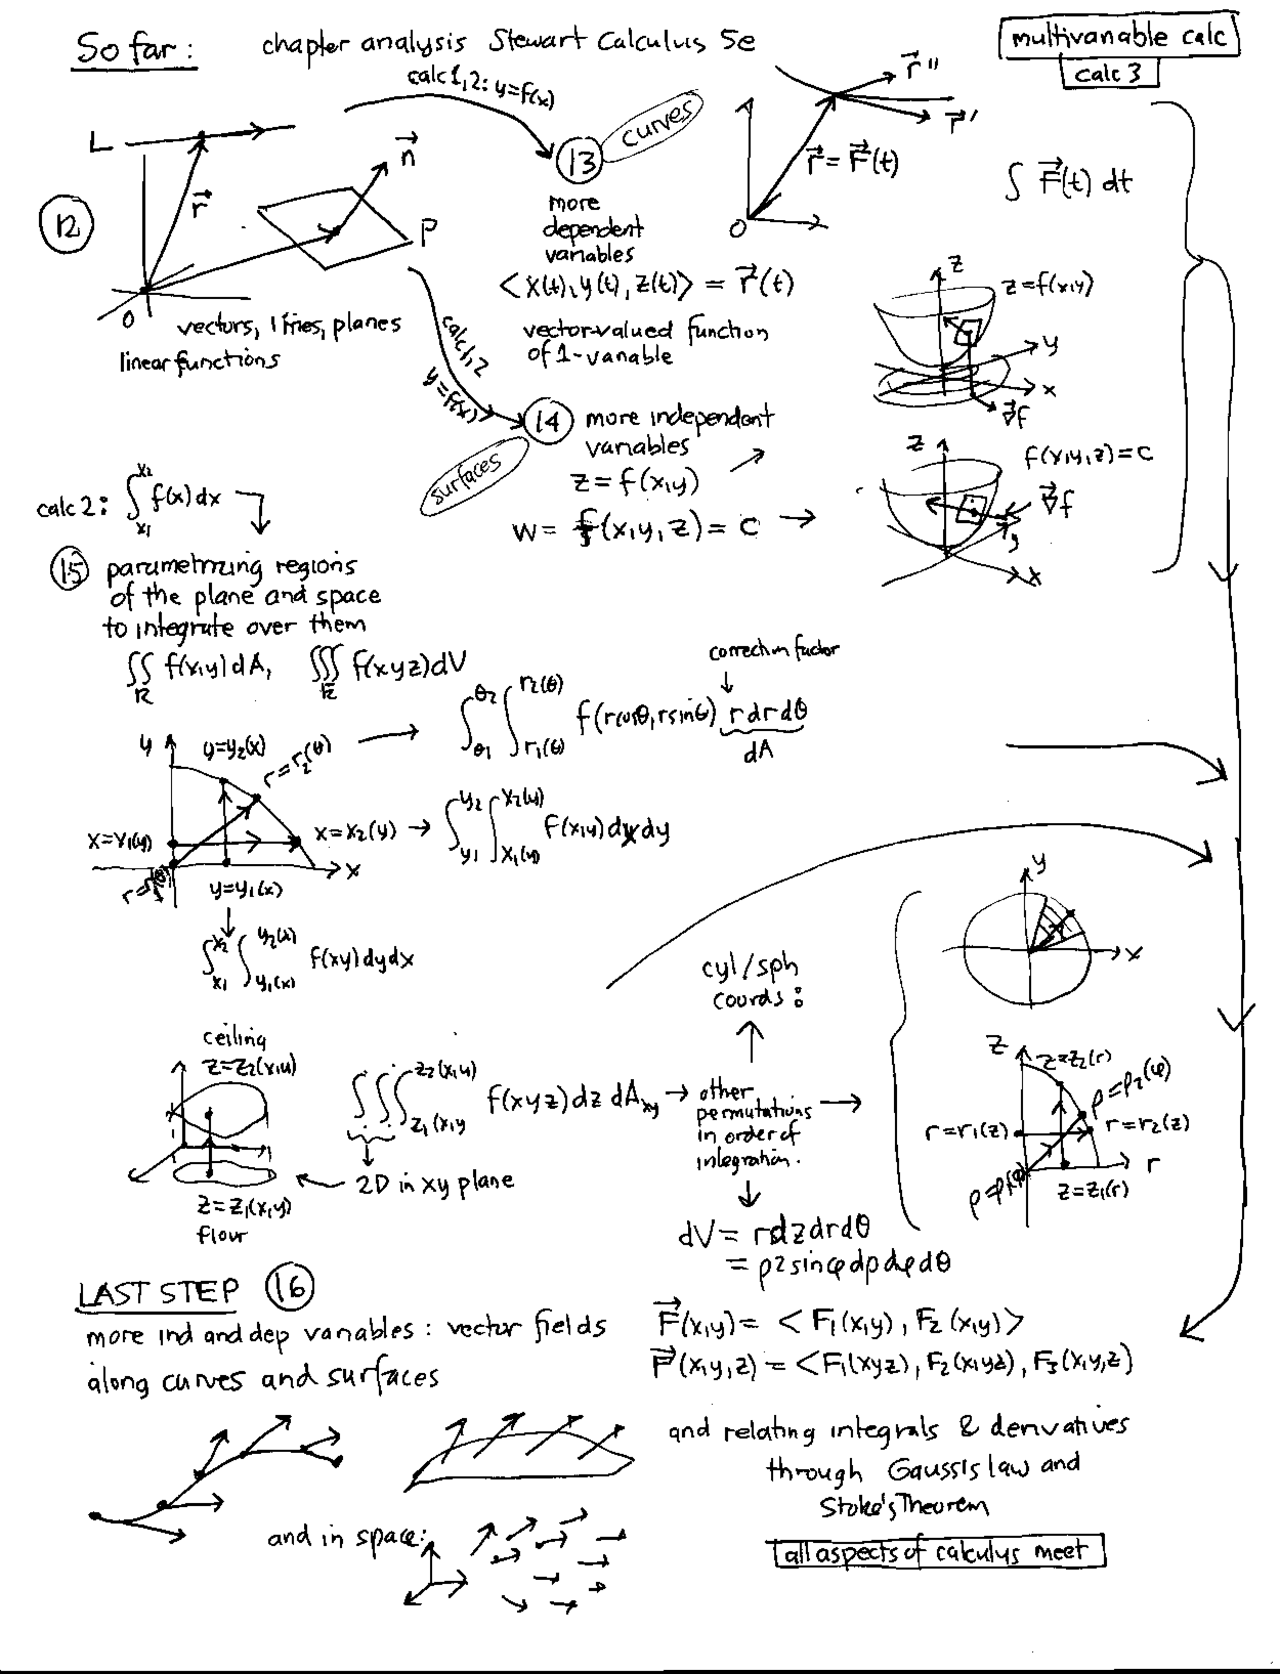 So far: chapter analysis Stewart Calculus 5e
multivariable calc
calc 3
calc 1,2: y=f(x)
L
r⃗
n⃗
P
O
12
vectors, lines, planes
linear functions
13
curves
more
dependent
variables
<x(t), y(t), z(t)> = r⃗(t)
vector-valued function
of 1-variable
r⃗''
r⃗'
r⃗ = F⃗(t)
O
∫ F⃗(t) dt
calc 1,2
y=f(x)
14
surfaces
more independent
variables
z = f(x,y)
w = f(x,y,z) = c
z
z=f(x,y)
y
x
∇⃗f
z
f(x,y,z)=c
∇⃗f
y
x
calc 2: ∫x1 x2 f(x) dx
15 parametrizing regions
of the plane and space
to integrate over them
∬R f(x,y) dA, ∭R f(xyz) dV
correction factor
∫θ1 θ2 ∫r1(θ) r2(θ) f(rcosθ, rsinθ) r dr dθ
dA
y
y=y2(x)
r=r2(θ)
x=x1(y)
x=x2(y) → ∫y1 y2 ∫x1(y) x2(y) f(x,y) dx dy
x
r=r1(θ)
y=y1(x)
∫x1 x2 ∫y1(x) y2(x) f(xy) dy dx
y
x
cyl/sph
coords:
ceiling
z=z2(x,y)
∫∫∫z1(x,y z2(x,y) f(xyz) dz dAxy → other
permutations
in order of
integration.
2D in xy plane
z=z1(x,y)
floor
z
z=z2(r)
ρ=ρ2(φ)
r=r1(z)
r=r2(z)
r
ρ=ρ1(φ)
z=z1(r)
dV = r dz dr dθ
= ρ2 sinφ dρ dφ dθ
LAST STEP 16
more ind and dep variables: vector fields
along curves and surfaces
F⃗(x,y) = < F1(x,y), F2(x,y)>
F⃗(x,y,z) = <F1(xyz), F2(x,yz), F3(x,y,z)
and relating integrals & derivatives
through Gauss's law and
Stoke's Theorem
and in space:
all aspects of calculus meet